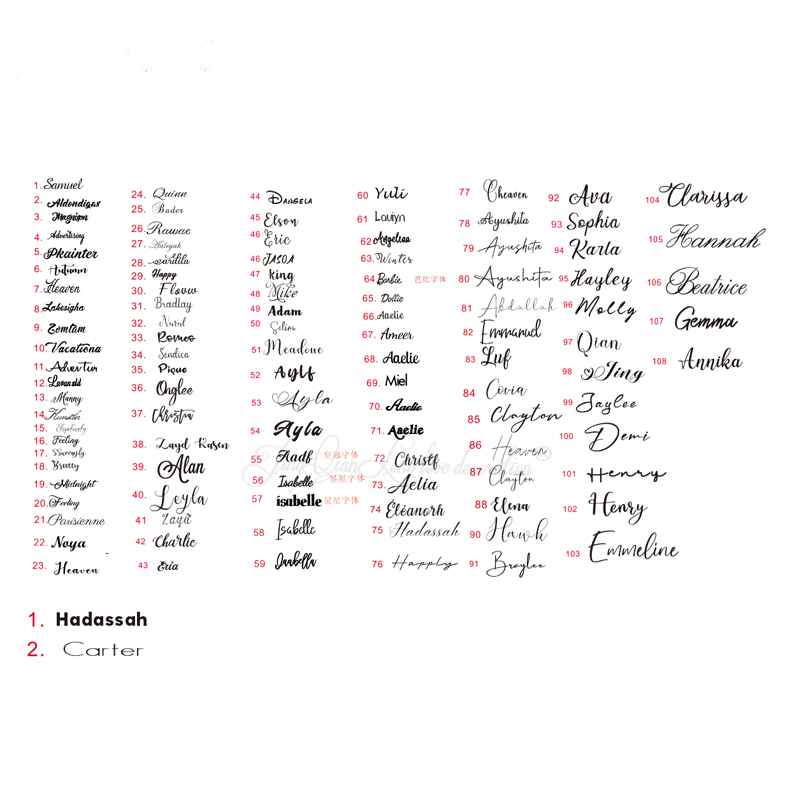 1. Samuel
2. Aldondigas
3. Magnism
4. Advertising
5. Pkainter
6. Autumn
7. Heaven
8. Lakesigha
9. Zomtam
10. Vacationa
11. Advertur
12.
13. Manny
14.
15.
16. Feeling
17.
18. Breezy
19. Midnight
20. Feeling
21. Parisienne
22. Noya
23. Heaven
24. Quinn
25. Bader
26. Rawac
27. Haleyah
28.
29. Happy
30. Flovw
31. Bradlay
32. Nurul
33. Romeo
34. Sendica
35. Pique
36. Onglee
37. Christia
38. Zayd Karen
39. Alan
40. Leyla
41 Zaya
42 Charlie
43 Eria
44 Dangela
45 Elson
46 Eric
46 JASOA
47 king
48 Mike
49 Adam
50 Selina
51 Meadowe
52 Aylf
53 Ayla
54 Ayla
55 Aadf 皇冠字体
56 Isabelle 星星字体
57 isabelle 星星字体
58 Isabelle
59 Isabella
60 Yuli
61 Lauiyn
62 Angelica
63. Winter
64 Barbie 芭比字体
65. Dollie
66. Aaelie
67. Ameer
68. Aaelie
69. Miel
70. Aaelie
71. Aaelie
72. Christf
73. Aelia
74 Éléanorh
75 Hadassah
76 Happly
77 Cheaven
78 Ayushita
79 Ayushita
80 Ayushita
81 Abdallah
82 Emmanud
83 Luf
84 Covia
85 Clayton
86 Heaven
87 Clayton
88 Elena
90 Hawk
91 Braylee
92 Ava
93 Sophia
94 Karla
95 Hayley
96 Molly
97 Qian
98 Jing
99 Jaylee
100 Demi
101 Henry
102 Henry
103 Emmeline
104 Clarissa
105 Hannah
106 Beatrice
107 Gemma
108 Annika
1. Hadassah
2. Carter